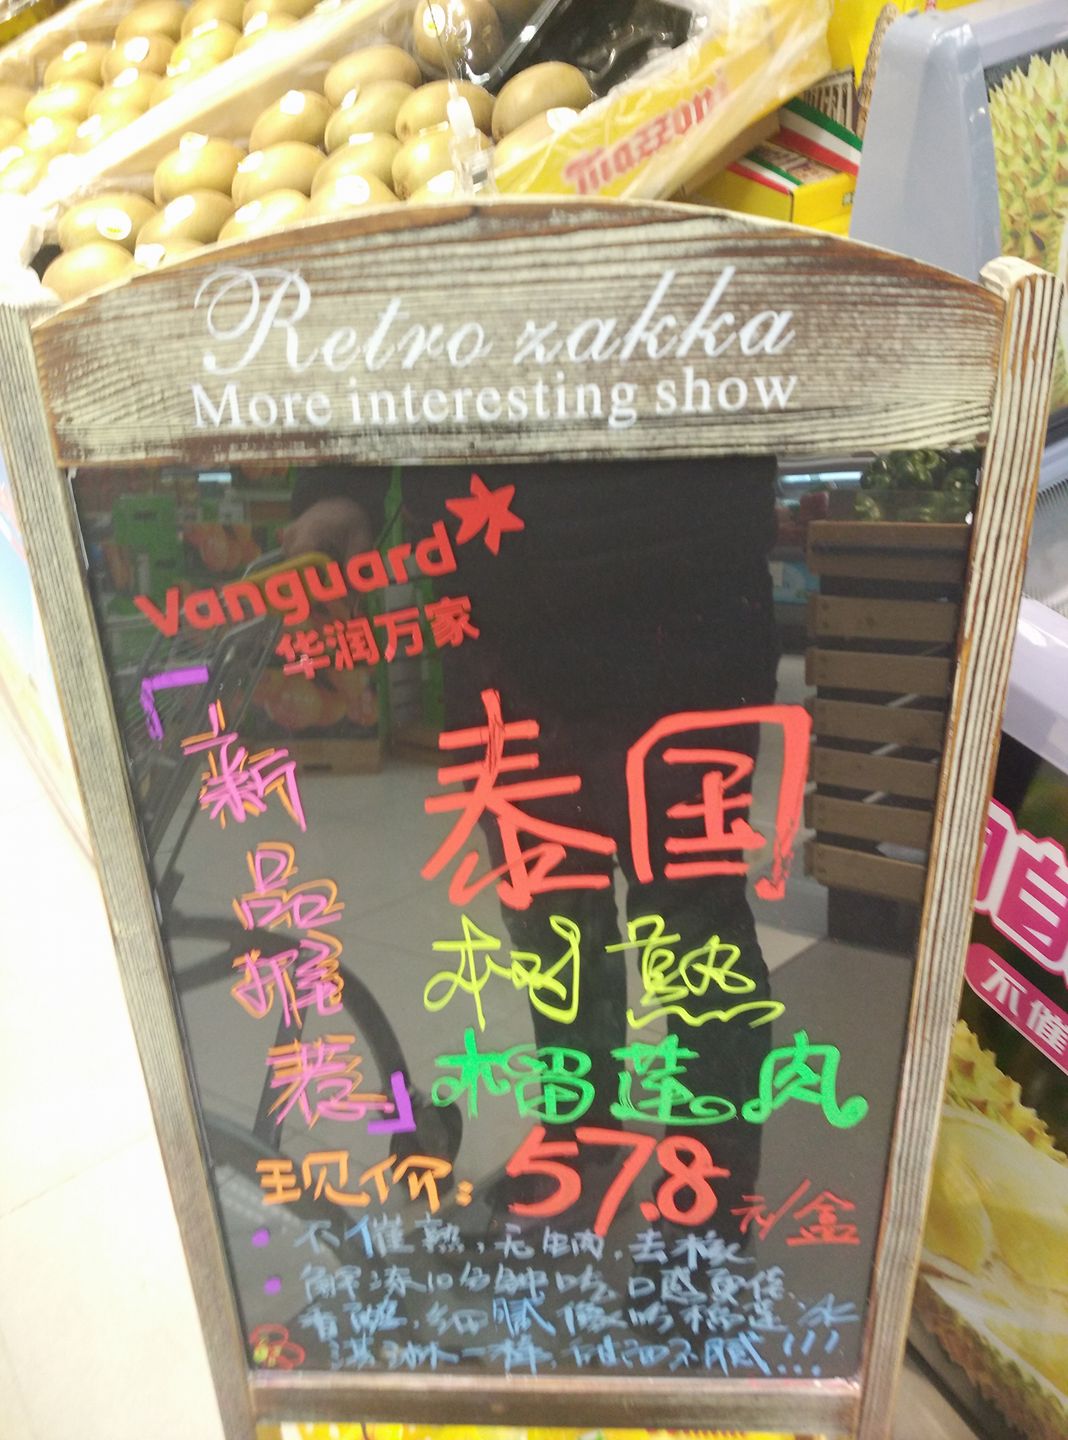 Mazzoni
Retro zakka
More interesting show
Vanguard
华润万家
「新品推荐」
泰国
树熟
榴莲肉
现价：57.8元/盒
不催熟，无
去核
解冻10分钟吃口感更佳、
香甜，细腻像吃榴莲冰
淇淋一样，甜而不腻！！！
自
不催